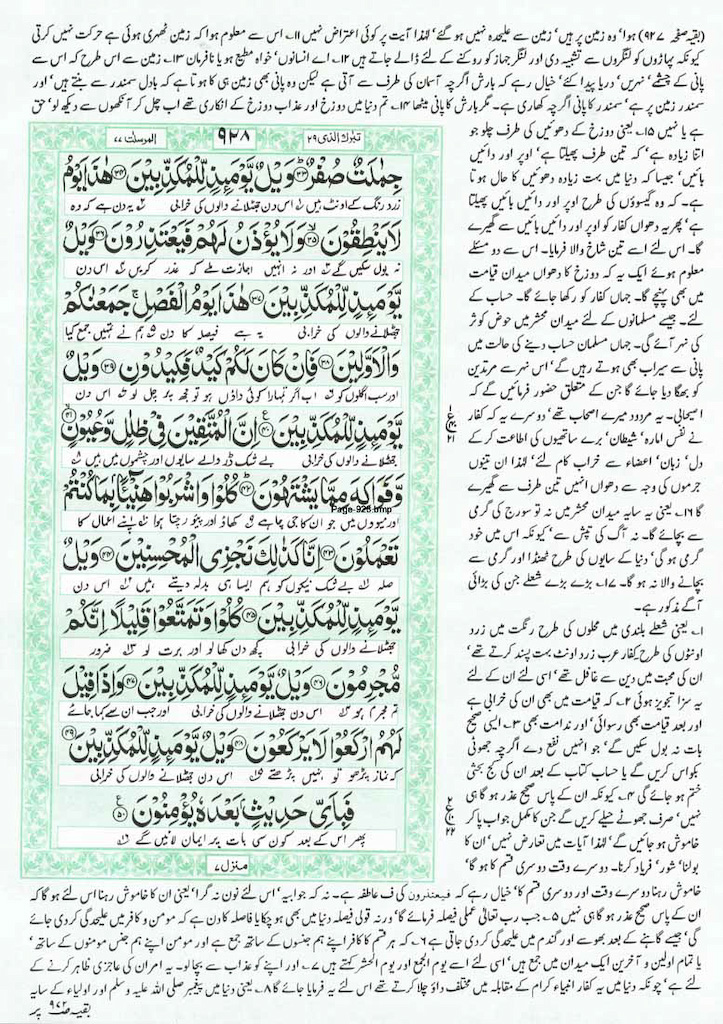 (بقیہ صفحہ ۹۲۷) ہوا' وہ زمین پر ہیں' زمین سے علیحدہ نہیں ہو گئے' لہٰذا آیت پر کوئی اعتراض نہیں ۱۱؎ اس سے معلوم ہوا کہ زمین ٹھہری ہوئی ہے حرکت نہیں کرتی
کیونکہ پہاڑوں کو لنگروں سے تشبیہ دی اور لنگر جہاز کو روکنے کے لئے ڈالے جاتے ہیں ۱۲؎ اے انسانوں' خواہ مطیع ہو یا نافرمان ۱۳؎ زمین سے اس طرح کہ اس سے
پانی کے چشمے' نہریں' دریا پیدا کئے' خیال رہے کہ بارش اگرچہ آسمان کی طرف سے آتی ہے لیکن وہ پانی بھی زمین ہی کا ہوتا ہے کہ بادل سمندر سے بنتے ہیں' اور
سمندر زمین پر ہے' سمندر کا پانی اگرچہ کھاری ہے۔ مگر بارش کا پانی میٹھا ۱۴؎ تم دنیا میں دوزخ اور عذاب دوزخ کے انکاری تھے اب چل کر آنکھوں سے دیکھ لو' حق
ہے یا نہیں ۱۵؎ یعنی دوزخ کے دھوئیں کی طرف چلو جو
اتنا زیادہ ہے' کہ تین طرف پھیلتا ہے' اوپر اور دائیں
بائیں' جیسا کہ دنیا میں بہت زیادہ دھوئیں کا حال ہوتا
ہے۔ کہ وہ گیسوؤں کی طرح اوپر اور دائیں بائیں پھیلتا
ہے' پھر یہ دھواں کفار کو اوپر اور دائیں بائیں سے گھیرے
گا۔ اس لئے اسے تین شاخ والا فرمایا۔ اس سے دو مسئلے
معلوم ہوئے ایک یہ کہ دوزخ کا دھواں میدان قیامت
میں بھی پہنچے گا۔ جہاں کفار کو رکھا جائے گا۔ حساب کے
لئے۔ جیسے مسلمانوں کے لئے میدان محشر میں حوض کوثر
کی نہر آئے گی۔ جہاں مسلمان حساب دینے کی حالت میں
پانی سے سیراب بھی ہوتے رہیں گے' اس نہر سے مرتدین
کو بھگا دیا جائے گا جن کے متعلق حضور فرمائیں گے کہ
اصیحابی۔ یہ مردود میرے اصحاب تھے' دوسرے یہ کہ کفار
نے نفس امارہ' شیطان' برے ساتھیوں کی اطاعت کر کے
دل' زبان' اعضاء سے خراب کام لئے' لہٰذا ان تینوں
جرموں کی وجہ سے دھواں انہیں تین طرف سے گھیرے
گا ۱۶؎ یعنی یہ سایہ میدان محشر میں نہ تو سورج کی گرمی
سے بچائے گا۔ نہ آگ کی تپش سے' کیونکہ اس میں خود
گرمی ہو گی' دنیا کے سایوں کی طرح ٹھنڈا اور گرمی سے
بچانے والا نہ ہو گا۔ ۱۷؎ بڑے بڑے شعلے جن کی بڑائی
آگے مذکور ہے۔
۱؎ یعنی شعلے بلندی میں محلوں کی طرح رنگت میں زرد
اونٹوں کی طرح کفار عرب زرد اونٹ بہت پسند کرتے تھے'
ان کی محبت میں دین سے غافل تھے' اسی لئے ان کے لئے
یہ سزا تجویز ہوئی ۲؎ کہ قیامت میں بھی ان کی خرابی ہے
اور بعد قیامت بھی رسوائی' اور ندامت بھی ۳؎ ایسی صحیح
بات نہ بول سکیں گے' جو انہیں نفع دے اگرچہ جھوٹی
بکواس کریں گے یا حساب کتاب کے بعد ان کی کج بحثی
ختم ہو جائے گی ۴؎ کیونکہ ان کے پاس صحیح عذر ہو گا ہی
نہیں' صرف جھوٹے حیلے کریں گے جن کا مکمل جواب پا کر
خاموش ہو جائیں گے' لہٰذا آیات میں تعارض نہیں' ان کا
بولنا' شور' فریاد کرنا۔ دوسرے وقت دوسری قسم کا ہو گا'
تبٰرک الذی ۲۹
۹۲۸
المرسلٰت ۷۷
جِمٰلَتٌ صُفْرٌ ﴿۳۳﴾ وَيْلٌ يَّوْمَئِذٍ لِّلْمُكَذِّبِيْنَ ﴿۳۴﴾ هٰذَا يَوْمُ
زرد رنگ کے اونٹ ہیں اس دن جھٹلانے والوں کی خرابی یہ دن ہے کہ وہ
لَا يَنْطِقُوْنَ ﴿۳۵﴾ وَلَا يُؤْذَنُ لَهُمْ فَيَعْتَذِرُوْنَ ﴿۳۶﴾ وَيْلٌ
نہ بول سکیں گے اور نہ انہیں اجازت ملے کہ عذر کریں اس دن
يَّوْمَئِذٍ لِّلْمُكَذِّبِيْنَ ﴿۳۷﴾ هٰذَا يَوْمُ الْفَصْلِ ۚ جَمَعْنٰكُمْ
جھٹلانے والوں کی خرابی یہ ہے فیصلہ کا دن ہم نے تمہیں جمع کیا
وَالْاَوَّلِيْنَ ﴿۳۸﴾ فَاِنْ كَانَ لَكُمْ كَيْدٌ فَكِيْدُوْنِ ﴿۳۹﴾ وَيْلٌ
اور سب اگلوں کو اب اگر تمہارا کوئی داؤں ہو تو مجھ پر چل لو اس دن
يَّوْمَئِذٍ لِّلْمُكَذِّبِيْنَ ﴿۴۰﴾ اِنَّ الْمُتَّقِيْنَ فِيْ ظِلٰلٍ وَّعُيُوْنٍ ﴿۴۱﴾
جھٹلانے والوں کی خرابی بے شک ڈر والے سایوں اور چشموں میں ہیں
وَّفَوَاكِهَ مِمَّا يَشْتَهُوْنَ ﴿۴۲﴾ كُلُوْا وَاشْرَبُوْا هَنِيْٓئًا بِمَا كُنْتُمْ
Page-928.bmp
اور میووں میں جو ان کا جی چاہے کھاؤ اور پیو رچتا ہوا اپنے اعمال کا
تَعْمَلُوْنَ ﴿۴۳﴾ اِنَّا كَذٰلِكَ نَجْزِي الْمُحْسِنِيْنَ ﴿۴۴﴾ وَيْلٌ
صلہ بے شک نیکوں کو ہم ایسا ہی بدلہ دیتے ہیں اس دن
يَّوْمَئِذٍ لِّلْمُكَذِّبِيْنَ ﴿۴۵﴾ كُلُوْا وَتَمَتَّعُوْا قَلِيْلًا اِنَّكُمْ
جھٹلانے والوں کی خرابی کچھ دن کھا لو اور برت لو ضرور
مُّجْرِمُوْنَ ﴿۴۶﴾ وَيْلٌ يَّوْمَئِذٍ لِّلْمُكَذِّبِيْنَ ﴿۴۷﴾ وَاِذَا قِيْلَ
تم مجرم ہو اس دن جھٹلانے والوں کی خرابی اور جب ان سے کہا جائے
لَهُمُ ارْكَعُوْا لَا يَرْكَعُوْنَ ﴿۴۸﴾ وَيْلٌ يَّوْمَئِذٍ لِّلْمُكَذِّبِيْنَ ﴿۴۹﴾
کہ نماز پڑھو تو نہیں پڑھتے اس دن جھٹلانے والوں کی خرابی
فَبِاَيِّ حَدِيْثٍۭ بَعْدَهٗ يُؤْمِنُوْنَ ﴿۵۰﴾
پھر اس کے بعد کون سی بات پر ایمان لائیں گے
منزل ۷
خاموش رہنا دوسرے وقت اور دوسری قسم کا' خیال رہے کہ فیعتذرون کی ف عاطفہ ہے۔ نہ کہ جوابیہ' اس لئے نون نہ گرا' یعنی ان کا خاموش رہنا اس لئے ہو گا کہ
ان کے پاس صحیح عذر ہو گا ہی نہیں ۵؎ جب رب تعالیٰ عملی فیصلہ فرمائے گا' ورنہ قولی فیصلہ دنیا میں بھی ہو چکا یا فاصلہ کا دن ہے کہ مومن و کافر میں علیحدگی کر دی جائے
گی' جیسے گاہنے کے بعد بھوسے اور گندم میں علیحدگی کر دی جاتی ہے ۶؎ کہ ہر قسم کا کافر اپنے ہم جنسوں کے ساتھ جمع ہے اور مومن اپنے ہم جنس مومنوں کے ساتھ'
یا تمام اولین و آخرین ایک میدان میں جمع ہیں' اسی لئے اسے یوم الجمع اور یوم الحشر کہتے ہیں ۷؎ اور اپنے کو عذاب سے بچا لو۔ یہ امر ان کی عاجزی ظاہر کرنے کے
لئے ہے' چونکہ دنیا میں یہ کفار انبیاء کرام کے مقابلہ میں مختلف داؤ چلا کرتے تھے اس لئے یہ فرمایا جائے گا ۸؎ دنیا میں پیغمبر صلی اللہ علیہ وسلم اور اولیاء کے سایہ
بقیہ صفحہ ۹۶۲ پر